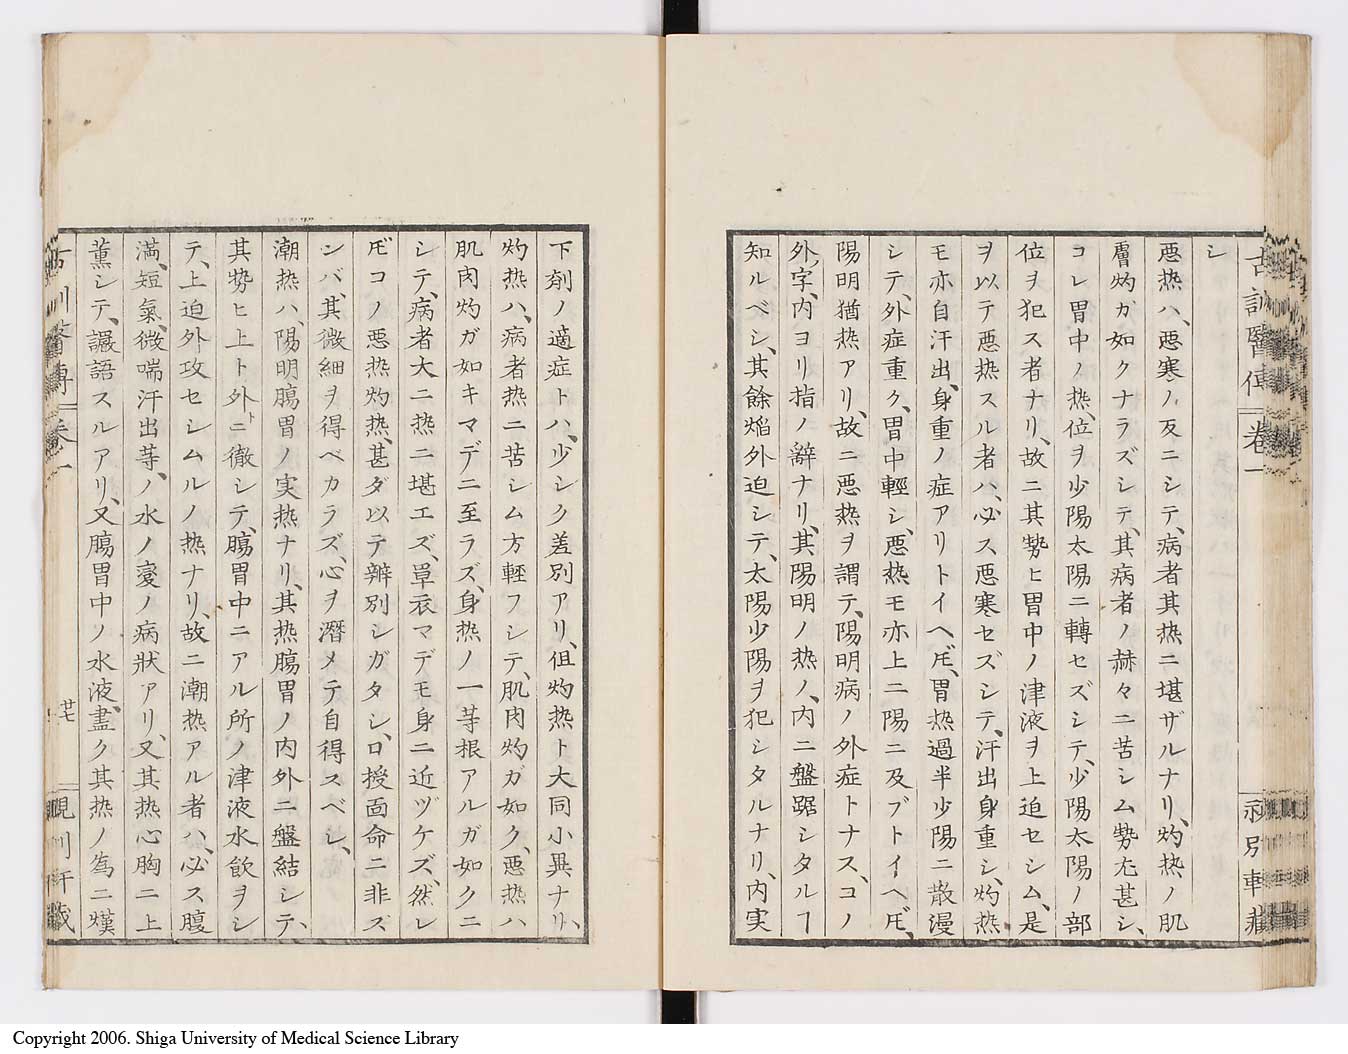 古訓醫傳 卷一
シ
悪热ハ、悪寒ノ反ニシテ、病者其热ニ堪ザルナリ、灼热ノ肌
膚灼ガ如クナラズシテ、其病者ノ赫々ニ苦シム勢尤甚シ、
コレ胃中ノ热、位ヲ少陽太陽ニ轉セズシテ、少陽太陽ノ部
位ヲ犯ス者ナリ、故ニ其勢ヒ胃中ノ津液ヲ上迫セシム、是
ヲ以テ悪热スル者ハ、必ス悪寒セズシテ、汗出身重シ、灼热
モ亦自汗出、身重ノ症アリトイヘ𪜈、胃热過半少陽ニ散漫
シテ、外症重ク、胃中輕シ、悪热モ亦上ニ陽ニ及ブトイヘ𪜈、
陽明猶热アリ、故ニ悪热ヲ謂テ、陽明病ノ外症トナス、コノ
外字、内ヨリ指ノ辭ナリ、其陽明ノ热ノ、内ニ盤踞シタルヿ
知ルベシ、其餘焔外迫シテ、太陽少陽ヲ犯シタルナリ、内実
下剤ノ適症トハ、少シク差別アリ、但灼热ト大同小異ナリ、
灼热ハ、病者热ニ苦シム方輕フシテ、肌肉灼ガ如ク、悪热ハ
肌肉灼ガ如キマデニ至ラズ、身热ノ一等根アルガ如クニ
シテ、病者大ニ热ニ堪エズ、單衣マデモ身ニ近ヅケズ、然レ
𪜈コノ悪热灼热、甚ダ以テ辨別シガタシ、口授面命ニ非ズ
ンバ、其微細ヲ得ベカラズ、心ヲ潛メテ自得スベシ、
潮热ハ、陽明腸胃ノ実热ナリ、其热腸胃ノ内外ニ盤結シテ、
其勢ヒ上ト外トニ徹シテ、腸胃中ニアル所ノ津液水飲ヲシ
テ、上迫外攻セシムルノ热ナリ、故ニ潮热アル者ハ、必ス腹
満、短氣、微喘汗出等、ノ水ノ変ノ病狀アリ、又其热心胸ニ上
薫シテ、讝語スルアリ、又腸胃中ノ水液、盡ク其热ノ為ニ熯
卷一
廿七